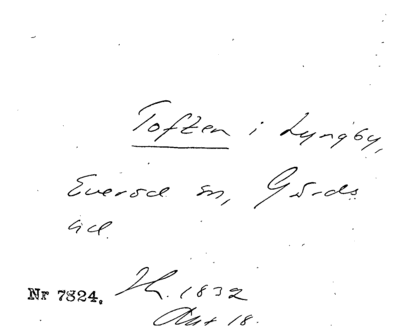 Toften i Lyngby,
Everöd sn, Gärds
hd.
Nr 7324. Th. 1832
Akt 18.